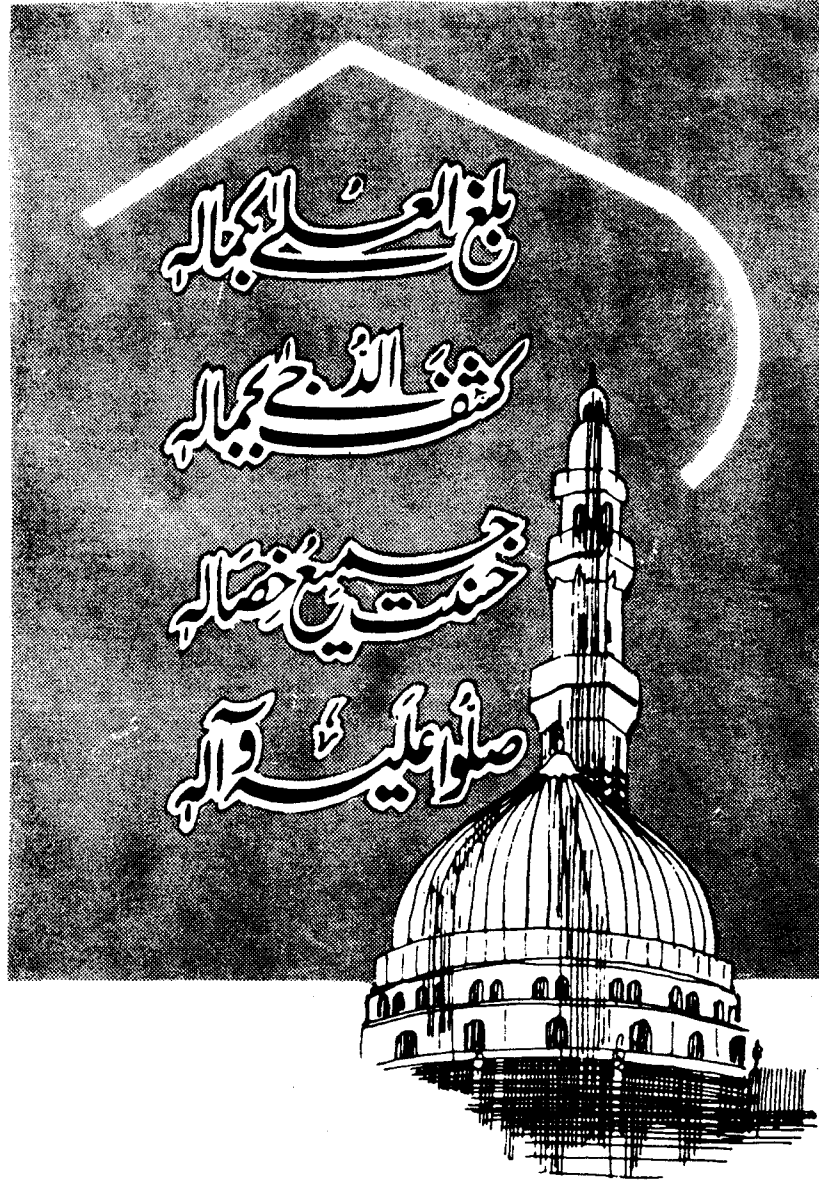 بلغ العلےٰ بکمالہٖ
کشفَ الدُّجےٰ بجمالہٖ
حسنت جمیعُ خِصَالہٖ
صلُّوا علَیہ وآلہٖ